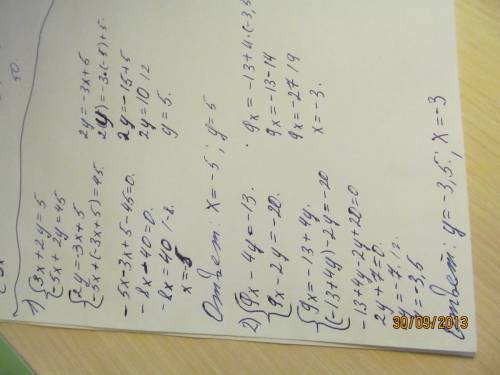 50.
1) {3x + 2y = 5
{-5x + 2y = 45
{2y = -3x + 5
{-5x + (-3x + 5) = 45.
-5x - 3x + 5 - 45 = 0.
-8x - 40 = 0.
-8x = 40 /-8.
x = -5
2y = -3x + 5
2y = -3·(-5) + 5.
2y = -15 + 5
2y = 10 /2
y = 5.
Ответ: x = -5; y = 5
2) {9x - 4y = -13.
{9x - 2y = -20.
{9x = -13 + 4y.
{(-13 + 4y) - 2y = -20
-13 + 4y - 2y + 20 = 0
2y + 7 = 0.
2y = -7. /2.
y = -3,5
9x = -13 + 4·(-3,5
9x = -13 - 14
9x = -27 /9
x = -3.
Ответ: y = -3,5; x = -3
30/09/2013